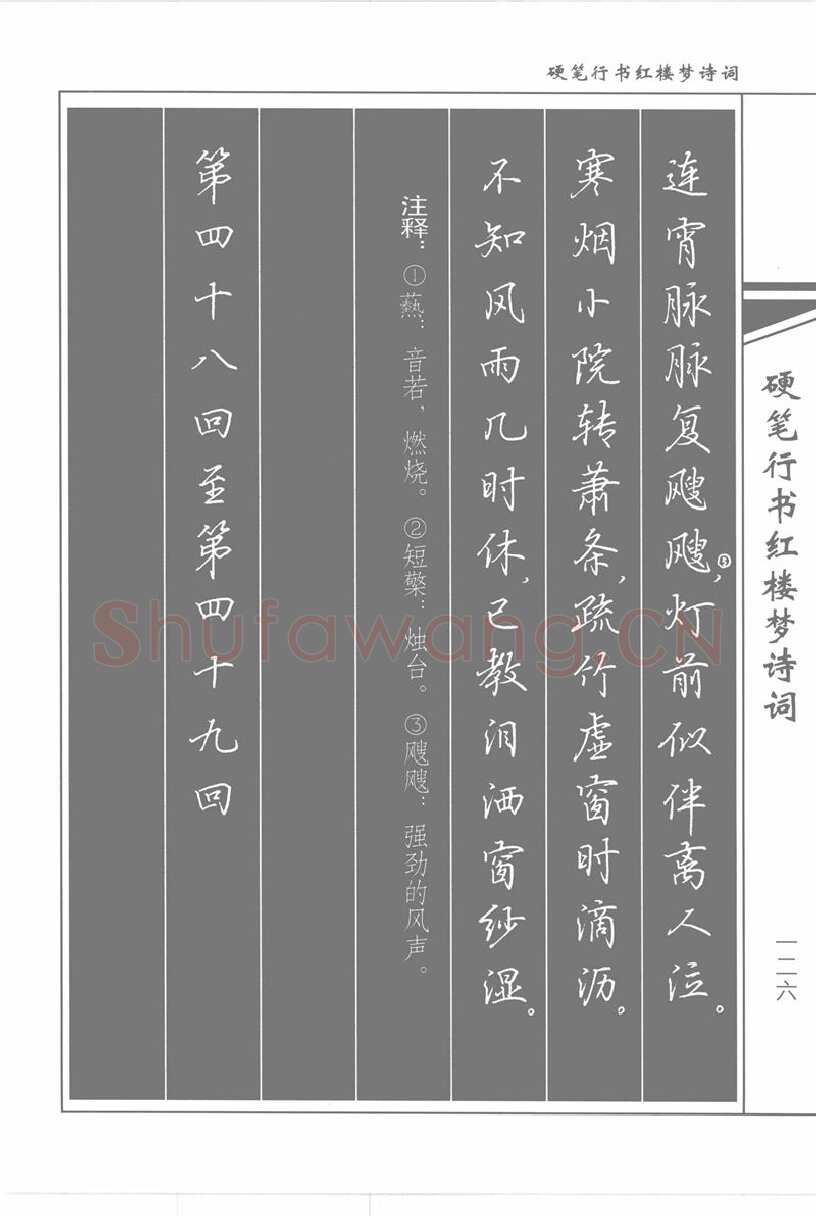 硬笔行书红楼梦诗词
硬笔行书红楼梦诗词
一二六
连宵脉脉复飕飕,③灯前似伴离人泣。
寒烟小院转萧条,疏竹虚窗时滴沥。
不知风雨几时休,已教泪洒窗纱湿。
注释:①爇:音若,燃烧。②短檠:烛台。③飕飕:强劲的风声。
第四十八回至第四十九回
Shufawang.CN